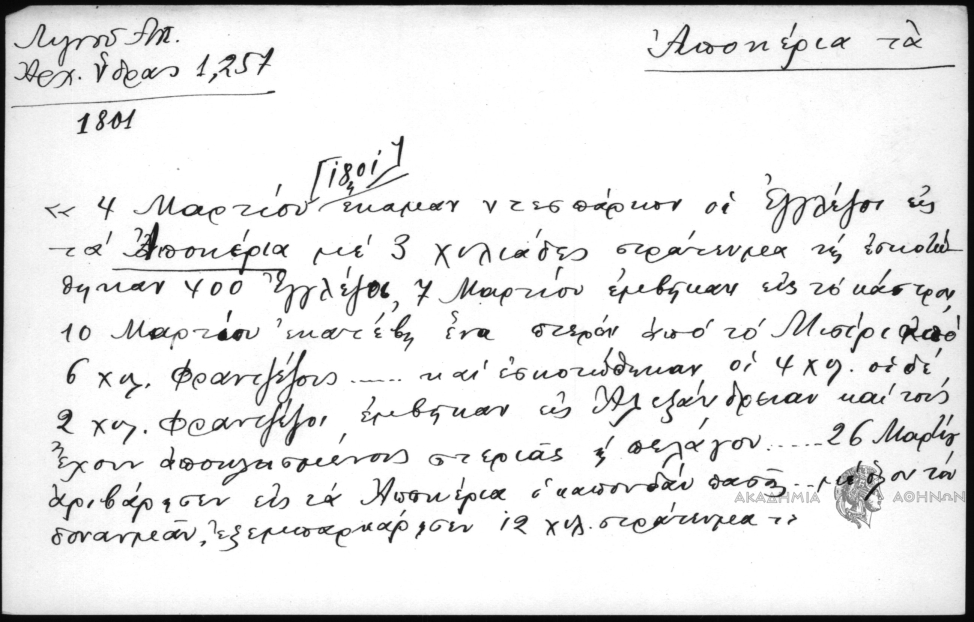 Λιγνοῦ Ἀπ.
Ἀρχ. Ὕδρας 1,257
1801
Ἀποκέρια τὰ
[1801]
« 4 Μαρτίου ἔκαμαν ντεσπάρκον οἱ Ἐγγλέζοι εἰς
τά Ἀποκέρια μέ 3 χυλιάδες στράτευμα κ ἐσκοτώ
θηκαν 400 Ἐγγλέζοι, 7 Μαρτίου ἐμβῆκαν εἰς τό κάστρον,
10 Μαρτίου ἐκατέβη ἕνα στερόν ἀπό τό Μισίρι ἀπό
6 χιλ. Φραντζέζους ...... καί ἐσκοτώθηκαν οἱ 4 χιλ. οἱ δέ
2 χιλ. Φραντζέζοι ἐμβῆκαν εἰς Ἀλεξάνδρειαν καί τούς
ἔχουν ἀποκλεισμένους στεριᾶς κ πελάγου ...... 26 Μαρτίου
ἀριβάρησεν εἰς τά Ἀποκέρια ὁ καπουδάν πασᾶς ... με ὅλον τόν
δονανμᾶν, ἐξεμπαρκάρησεν 12 χιλ. στράτευμα
ΑΚΑΔΗΜΙΑ ΑΘΗΝΩΝ